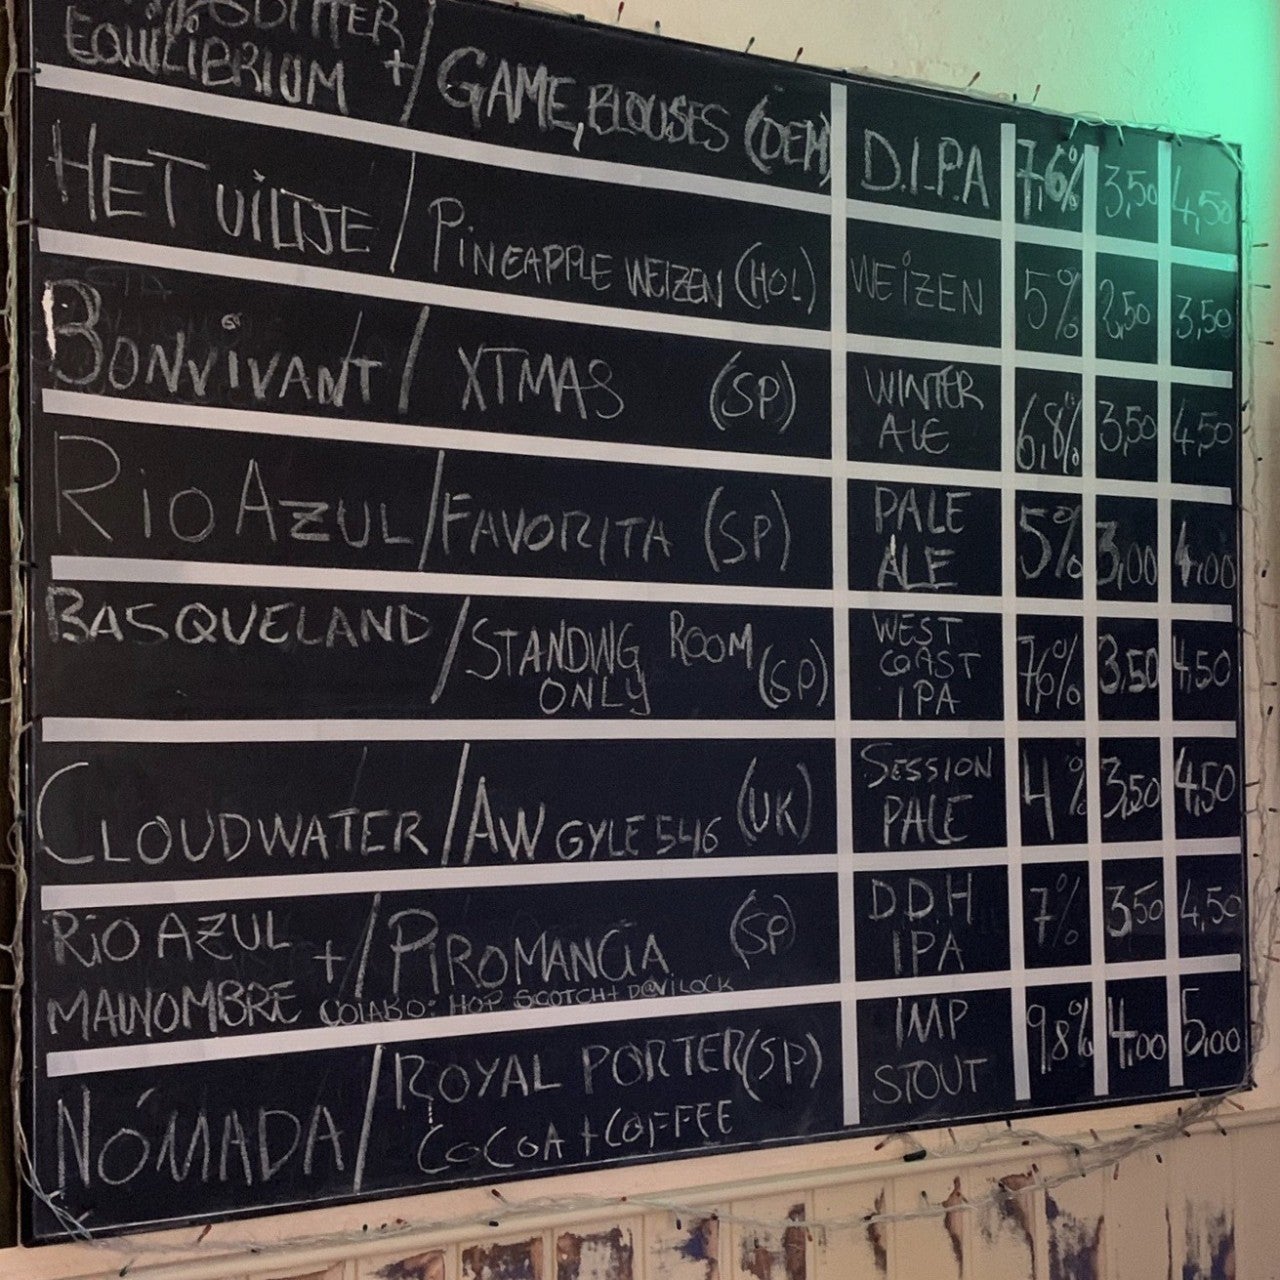 EQUILIBRIUM + / GAME, BLOUSES (DEM) D.I.P.A 7,6% 3,50 4,50
HET UILTJE / PINEAPPLE WEIZEN (HOL) WEIZEN 5% 2,50 3,50
BONVIVANT / XTMAS (SP) WINTER ALE 6,8% 3,50 4,50
RIO AZUL / FAVORITA (SP) PALE ALE 5% 3,00 4,00
BASQUELAND / STANDING ROOM ONLY (SP) WEST COAST IPA 7,6% 3,50 4,50
CLOUDWATER / AW GYLE 5416 (UK) SESSION PALE 4% 3,50 4,50
RIO AZUL + / PIROMANCIA (SP) D.D.H IPA 7% 3,50 4,50
MALNOMBRE COLABO: HOP SCOTCH + DEVILOCK
NÓMADA / ROYAL PORTER (SP) IMP STOUT 9,8% 4,00 5,00
COCOA + COFFEE